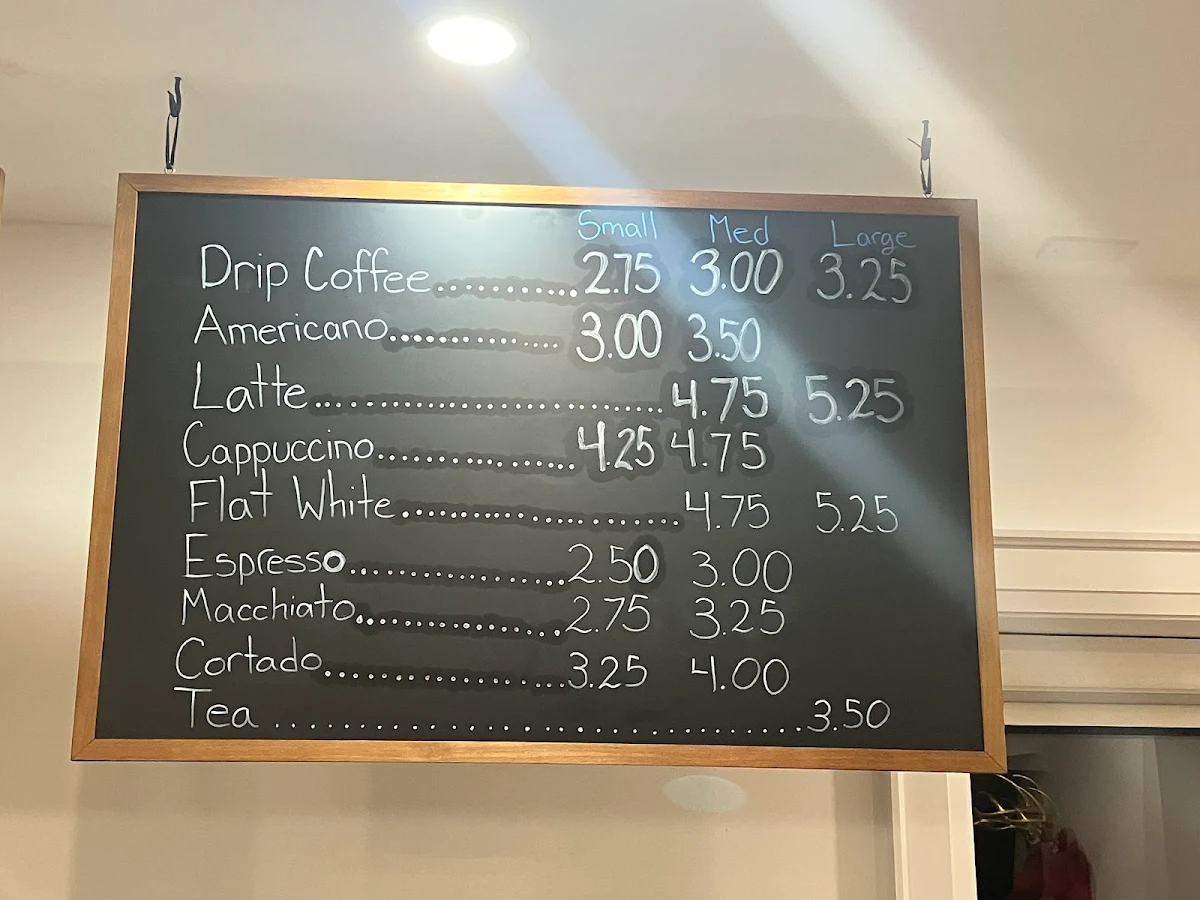 Small Med Large
Drip Coffee.........2.75 3.00 3.25
Americano............3.00 3.50
Latte................................4.75 5.25
Cappuccino...............4.25 4.75
Flat White........................4.75 5.25
Espresso.................2.50 3.00
Macchiato.................2.75 3.25
Cortado...................3.25 4.00
Tea ..............................3.50